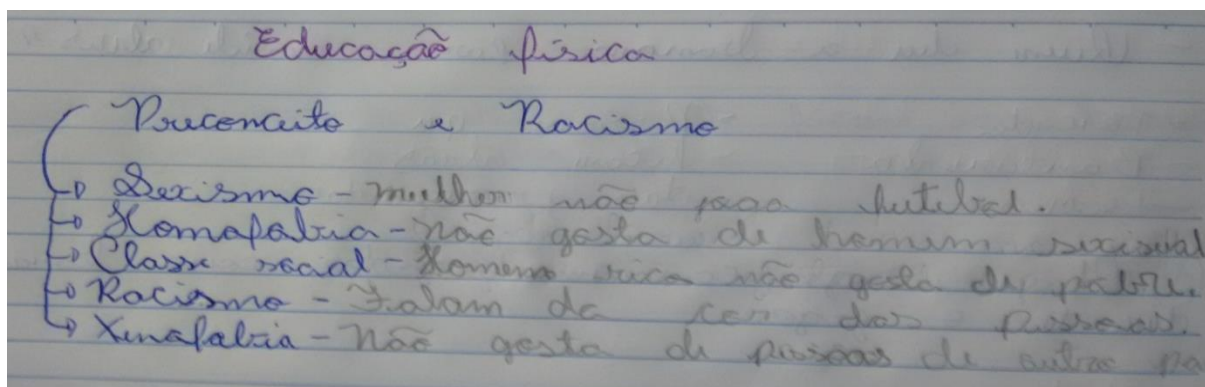 Educação física
Preconceito e Racismo
Sexismo - mulher não joga futebol.
Homofobia - não gosta de homem sexsual
Classe social - Homem rico não gosta de pobre.
Racismo - Falam da cor das pessoas.
Xenofobia - Não gosta de pessoas de outro pa